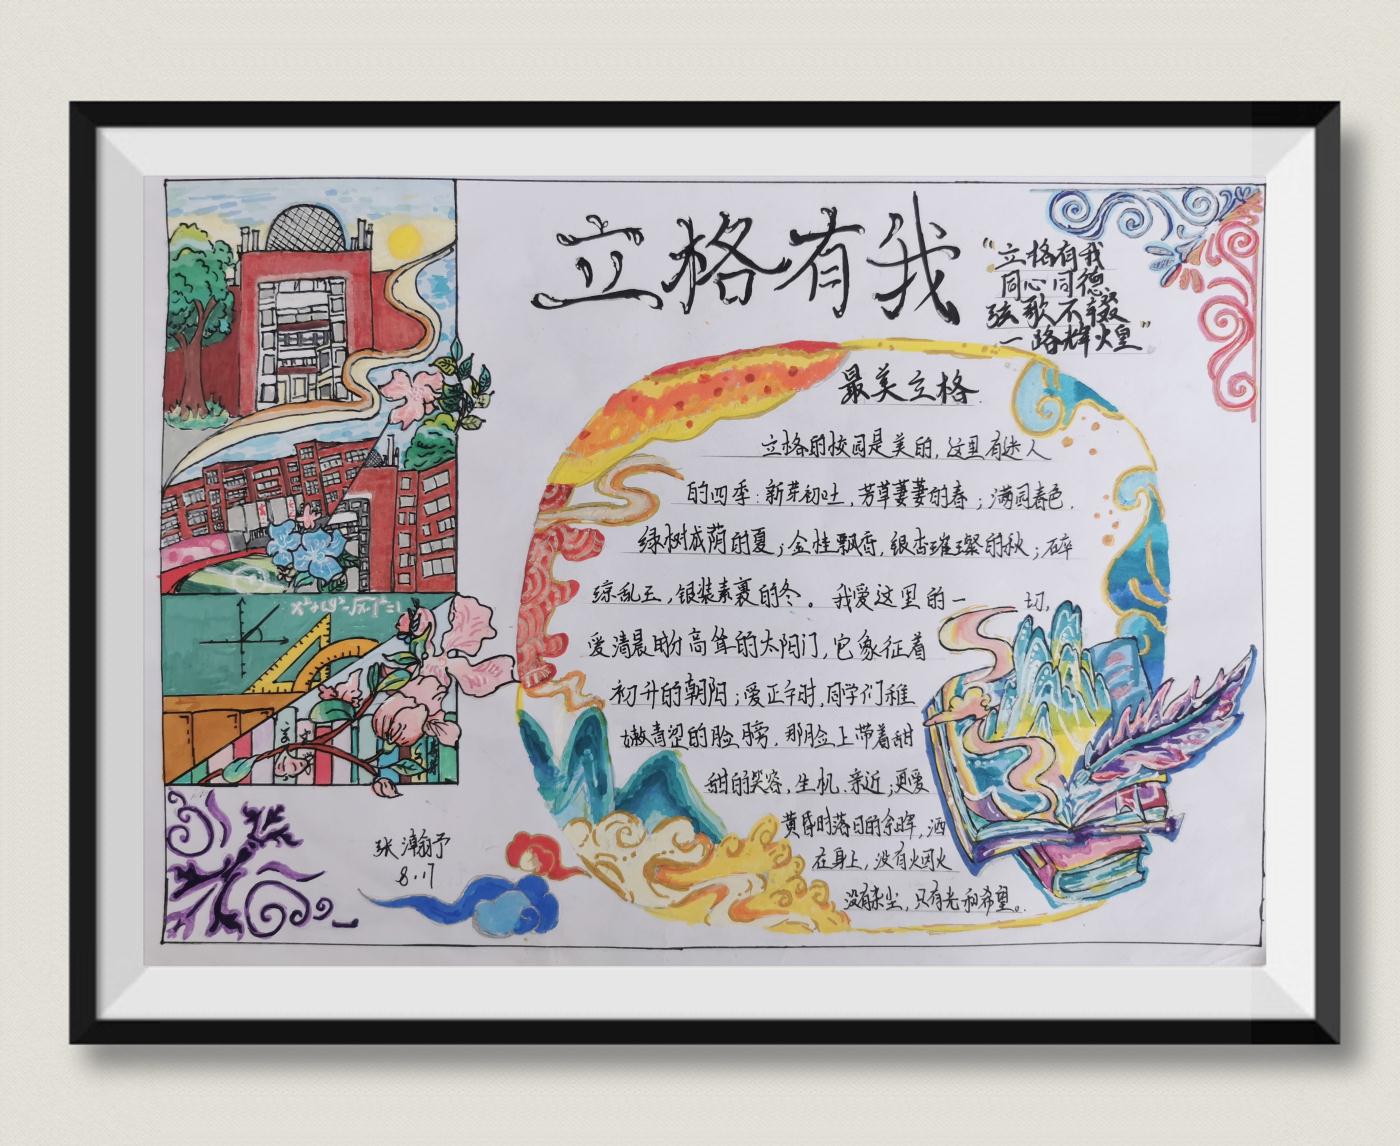 立格有我
"立格有我
同心同德
弦歌不辍
一路辉煌"
最美立格
立格的校园是美的，这里有迷人
的四季：新芽初吐，芳草萋萋的春；满园春色，
绿树成荫的夏；金桂飘香，银杏璀璨的秋；碎
琼乱玉，银装素裹的冬。我爱这里的一切，
爱清晨时分高耸的太阳门，它象征着
初升的朝阳；爱正午时，同学们稚
嫩青涩的脸庞，那脸上带着甜
甜的笑容，生机，亲近；更爱
黄昏时落日的余晖，洒
在身上，没有火
没有尘，只有光和希望。
x²+(y²-√x)²=1
文学
张瀚予
8.17